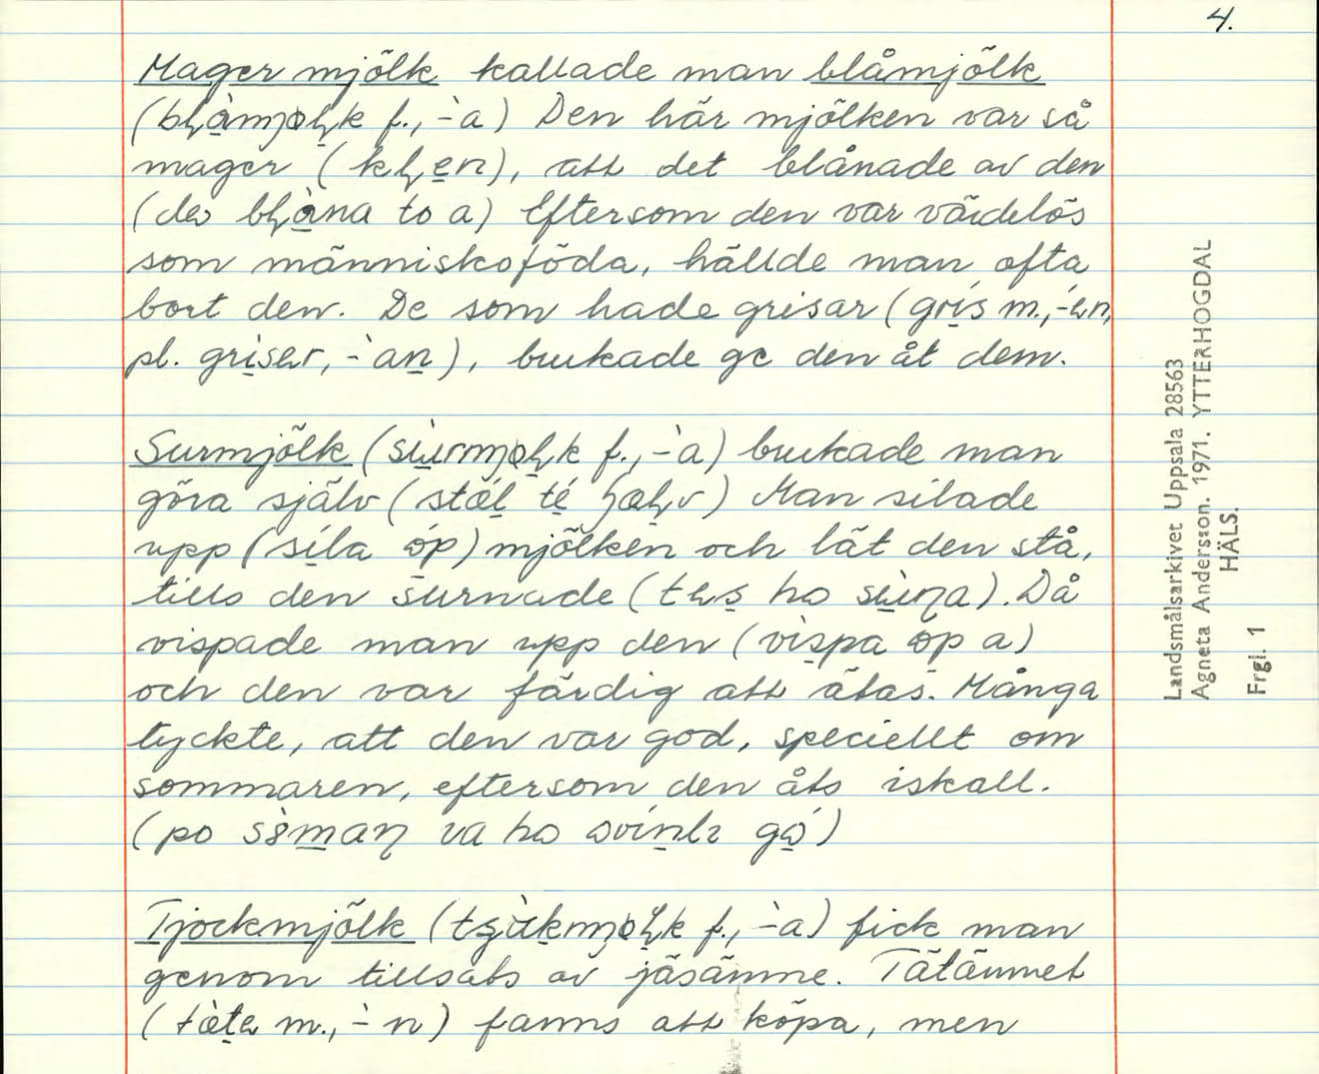 4.
Mager mjölk kallade man blåmjölk
(bḷàmjoḷk f., -̀a) Den här mjölken var så
mager (kḷen), att det blånade av den
(de bḷåna to a) Eftersom den var värdelös
som människoföda, hällde man ofta
bort den. De som hade grisar (grís m., -́en,
pl. griser, -̀an), brukade ge den åt dem.
Surmjölk (sùrmjoḷk f., -̀a) brukade man
göra själv (stǽl té ) Man silade
upp (síla óp) mjölken och lät den stå,
tills den surnade (tes ho sùṇa). Då
vispade man upp den (vìspa op a)
och den var färdig att ätas. Många
tyckte, att den var god, speciellt om
sommaren, eftersom den åts iskall.
(po va ho gó)
Tjockmjölk (f., -̀a) fick man
genom tillsats av jäsämne. Tätämnet
(tæ̀te m., -̀n) fanns att köpa, men
Landsmålsarkivet Uppsala 28563
Agneta Andersson. 1971. YTTERHOGDAL
HÄLS.
Frgl. 1